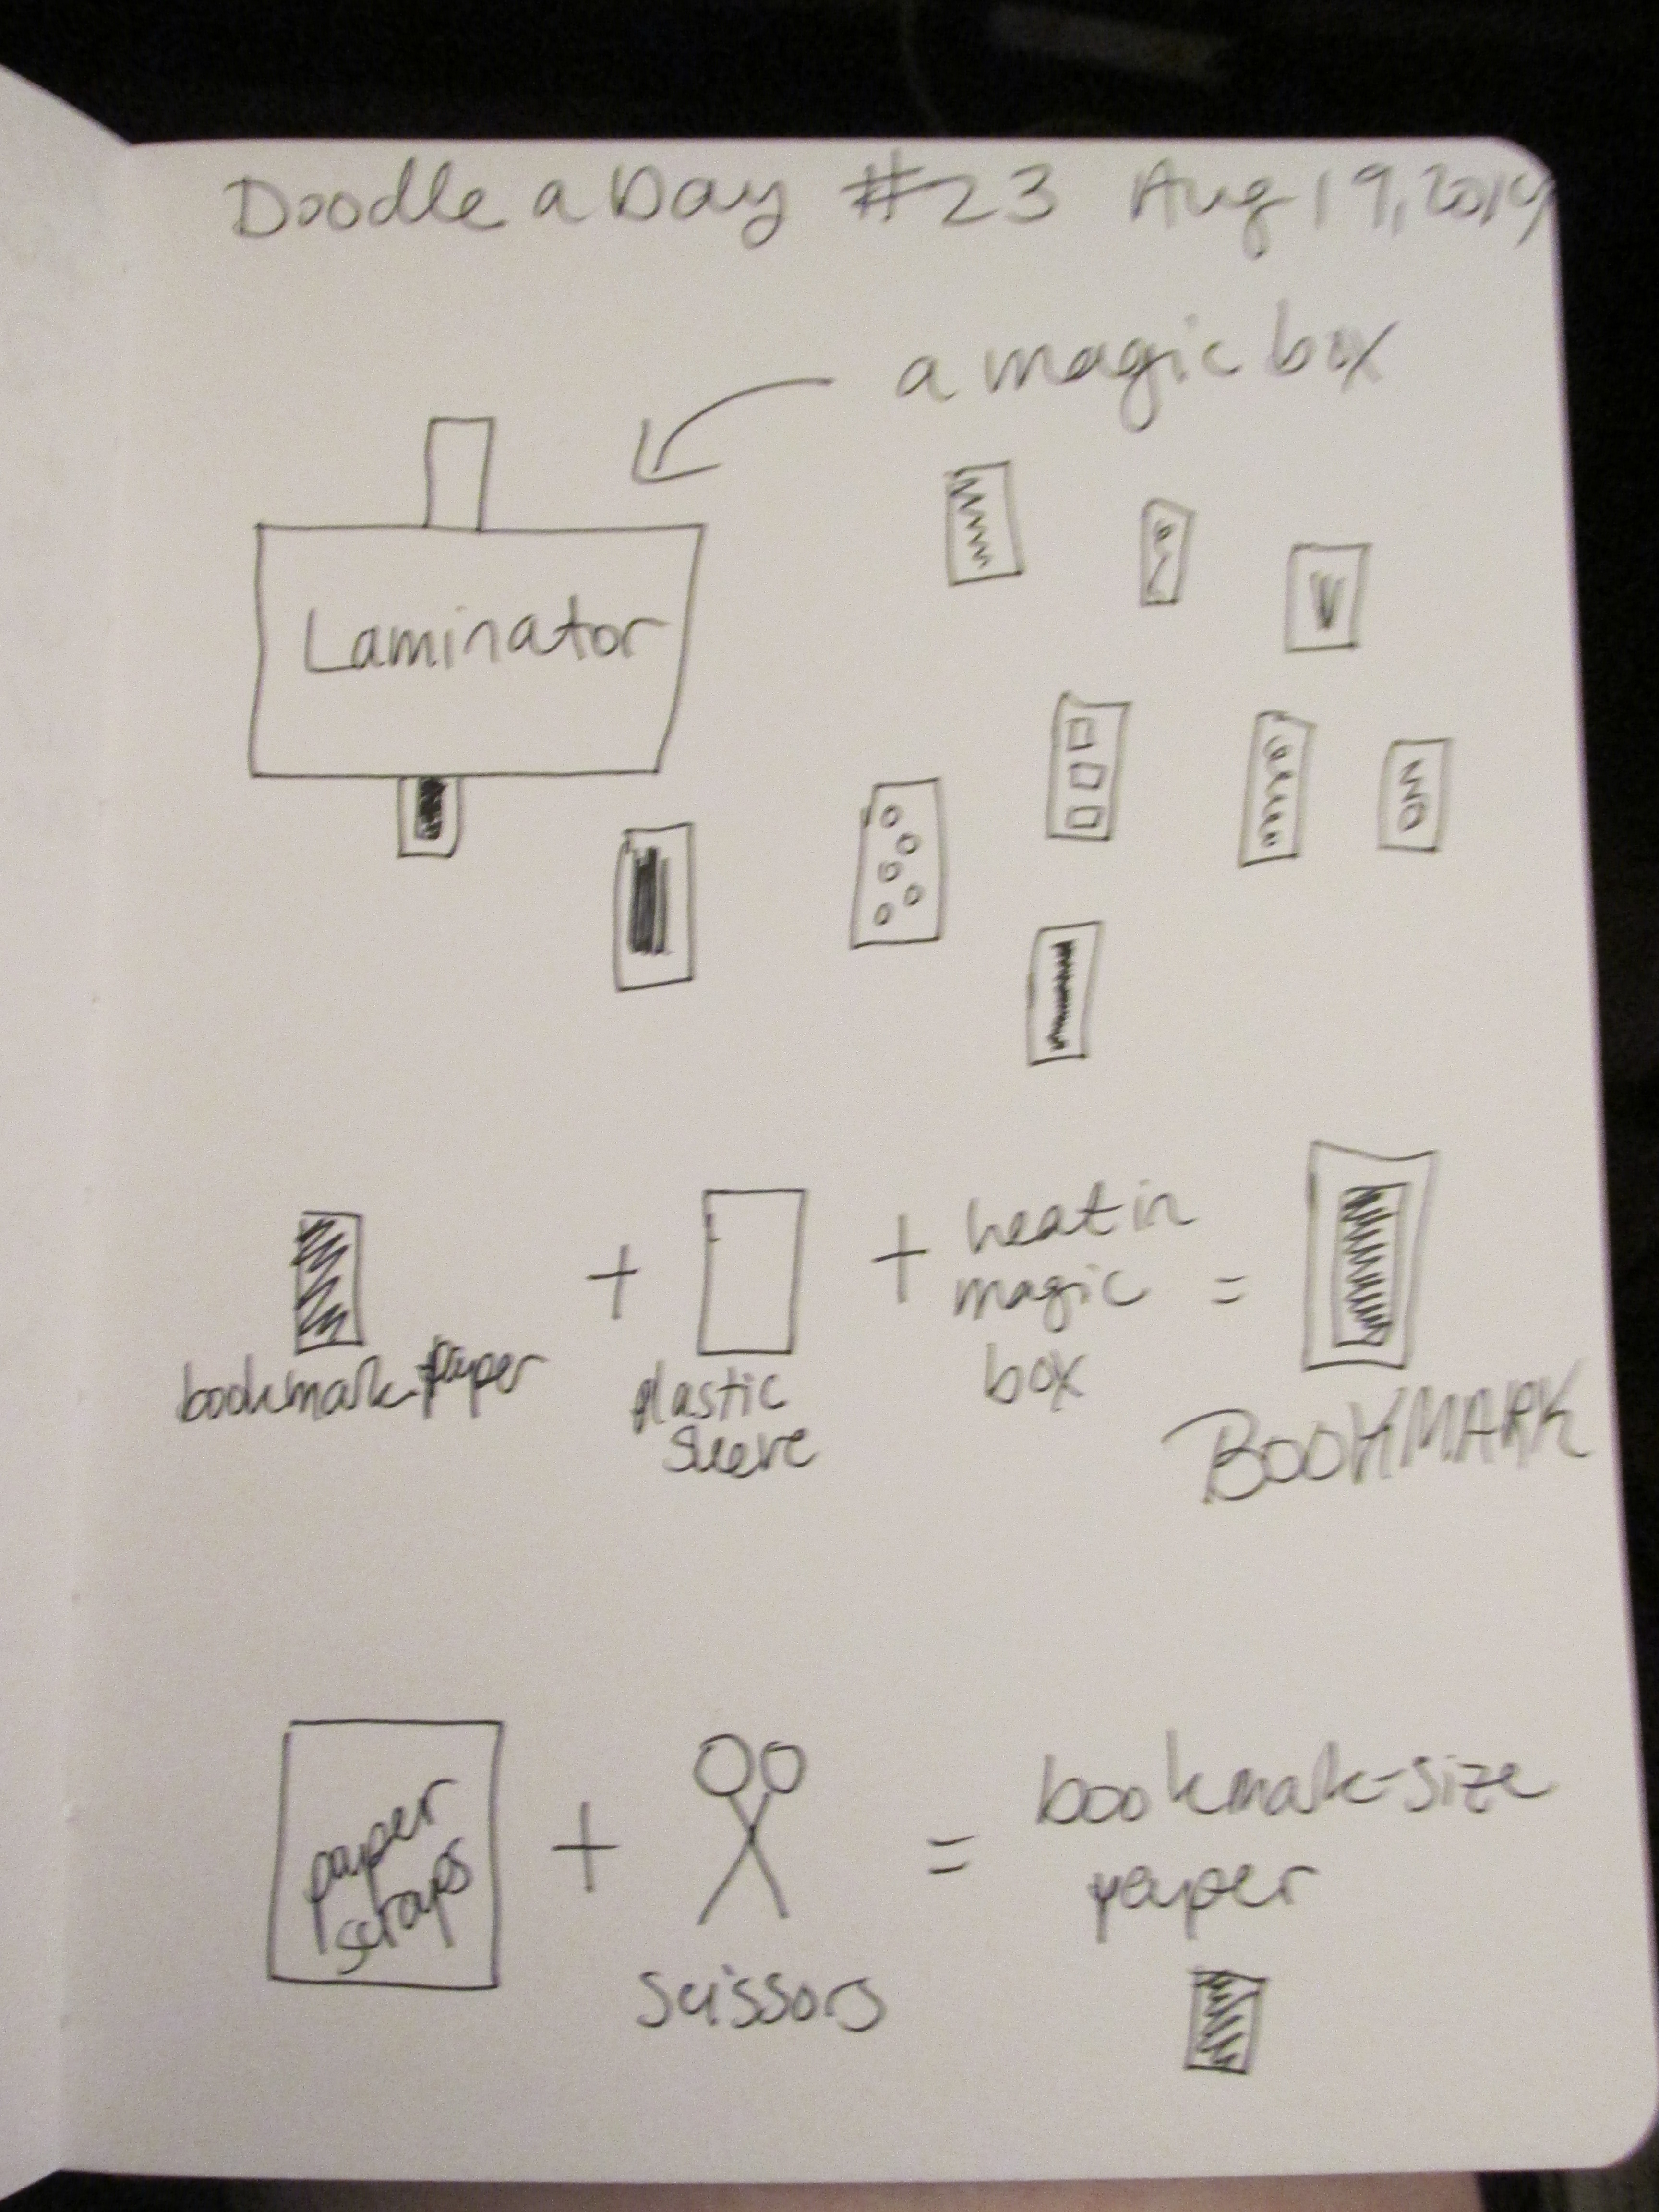 Doodle a Day #23 Aug 19, 2019
a magic box
Laminator
+
+
heat in
magic
box
=
bookmark-paper
plastic
sleeve
BOOKMARK
paper
scraps
+
scissors
=
bookmark-size
paper